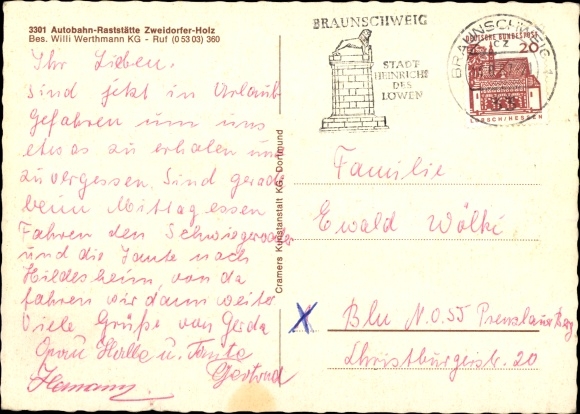 3301 Autobahn-Raststätte Zweidorfer-Holz
Bes. Willi Werthmann KG - Ruf (0 53 03) 360
Ihr Lieben.
sind jetzt in Urlaub
Gefahren um uns
etwas zu erholen und
zuvergessen. Sind gerade
beim Mittagessen
Fahren den Schwiegervater
und die Tante nach
Hildesheim, von da
fahren wir dann weiter
Viele Grüße von Gerda
Halle u. Tante
Gertrud
Hermann.
Cramers Kunstanstalt KG, Dortmund
BRAUNSCHWEIG
STADT
HEINRICHS
DES
LÖWEN
BRAUNSCHWEIG 1
CZ
DEUTSCHE BUNDESPOST
20
LORSCH/HESSEN
Familie
Ewald Wölki
X
Bln N.O.55 Prenzlauer Berg
Christburgerstr. 20